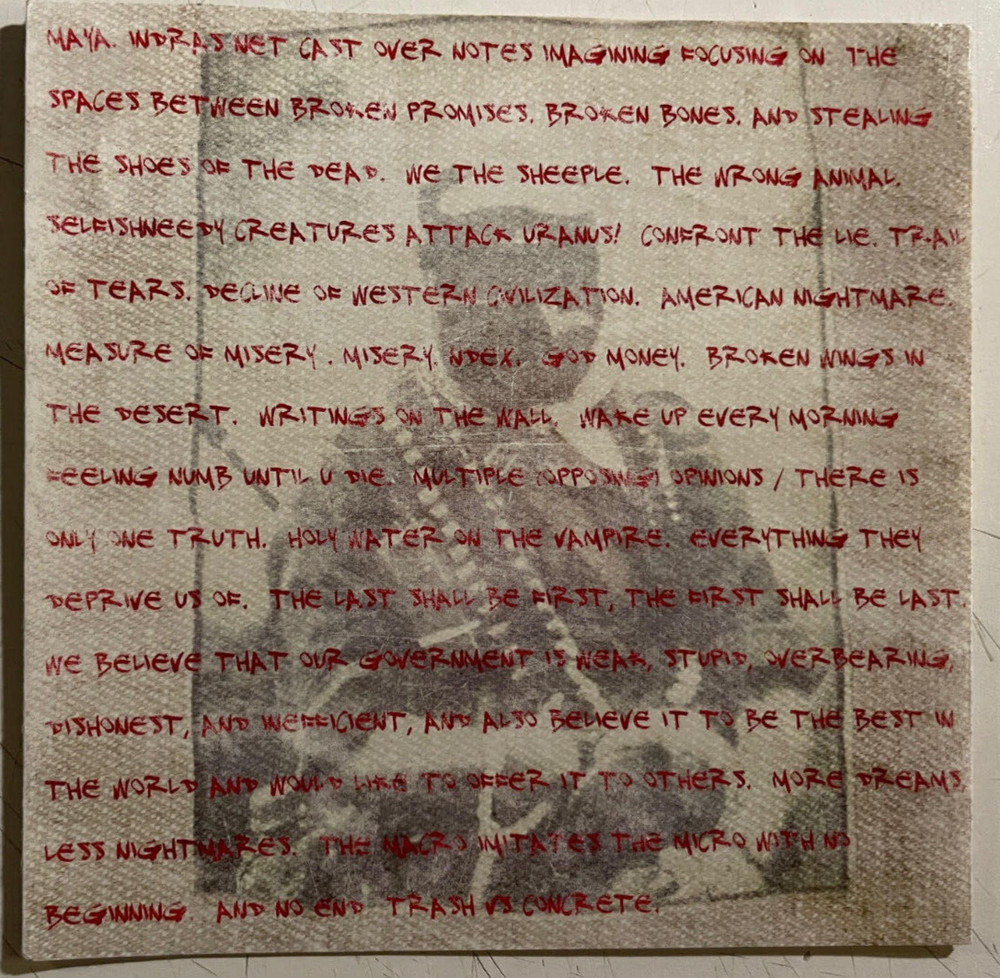 MAYA. INDRA'S NET CAST OVER NOTES IMAGINING FOCUSING ON THE
SPACES BETWEEN BROKEN PROMISES. BROKEN BONES. AND STEALING
THE SHOES OF THE DEAD. WE THE SHEEPLE. THE WRONG ANIMAL.
SELFISHNEEDY CREATURES ATTACK URANUS! CONFRONT THE LIE. TRAIL
OF TEARS. DECLINE OF WESTERN CIVILIZATION. AMERICAN NIGHTMARE.
MEASURE OF MISERY. MISERY. INDEX. GOD MONEY. BROKEN WINGS IN
THE DESERT. WRITINGS ON THE WALL. WAKE UP EVERY MORNING
FEELING NUMB UNTIL U DIE. MULTIPLE (OPPOSING) OPINIONS / THERE IS
ONLY ONE TRUTH. HOLY WATER ON THE VAMPIRE. EVERYTHING THEY
DEPRIVE US OF. THE LAST SHALL BE FIRST, THE FIRST SHALL BE LAST.
WE BELIEVE THAT OUR GOVERNMENT IS WEAK, STUPID, OVERBEARING,
DISHONEST, AND INEFFICIENT, AND ALSO BELIEVE IT TO BE THE BEST IN
THE WORLD AND WOULD LIKE TO OFFER IT TO OTHERS. MORE DREAMS,
LESS NIGHTMARES. THE MACRO IMITATES THE MICRO WITH NO
BEGINNING AND NO END TRASH VS CONCRETE.